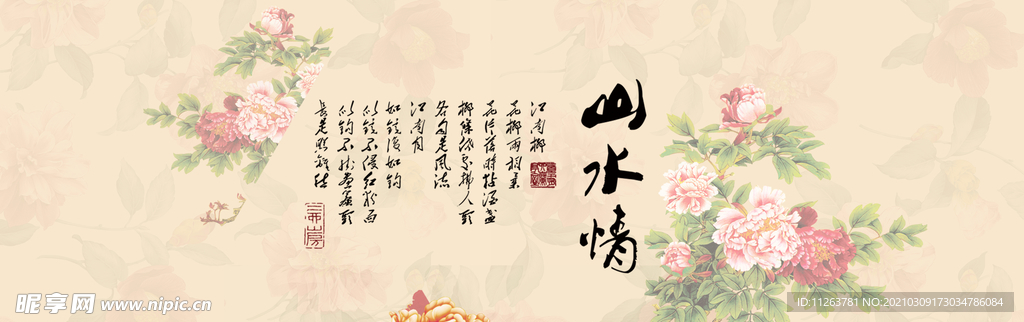 山水情
江南柳
花柳两相柔
花片落时黏酒盏
柳条低处拂人头
各自是风流
江南月
如镜复如钩
似镜不侵红粉面
似钩不挂画帘头
长是照离愁
昵享网 www.nipic.cn
ID:11263781 NO:20210309173034786084